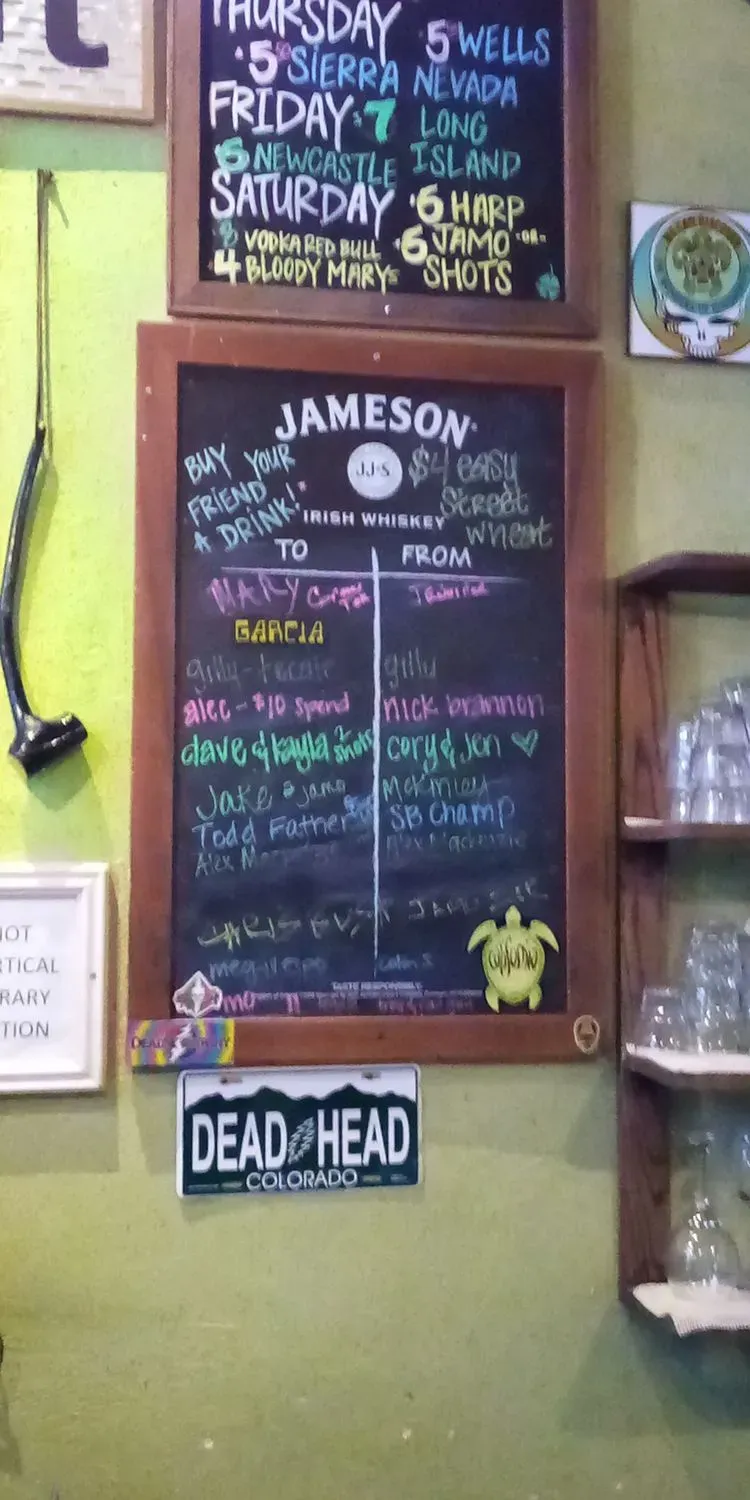 THURSDAY $5 WELLS
$5 SIERRA NEVADA
FRIDAY $7 LONG
6 NEWCASTLE ISLAND
SATURDAY $6 HARP
8 VODKA RED BULL $6 JAMO -OR-
4 BLOODY MARYS SHOTS
JAMESON
BUY YOUR
FRIEND
A DRINK!
JJ&S
$4 easy
Street
wheat
IRISH WHISKEY
TO FROM
MARY
GARCIA
gilly-tecate gilly
alec - $10 spend nick brannon
dave & kayla 2 shots cory & jen ♡
Jake jamo McKinley
Todd Father SB Champ
Alex Alex Mackenzie
TASTE RESPONSIBLY.
NOT
RTICAL
RARY
TION
DEAD HEAD
COLORADO